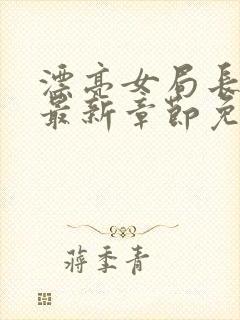 漂亮女局长
最新章节免
蒋季青